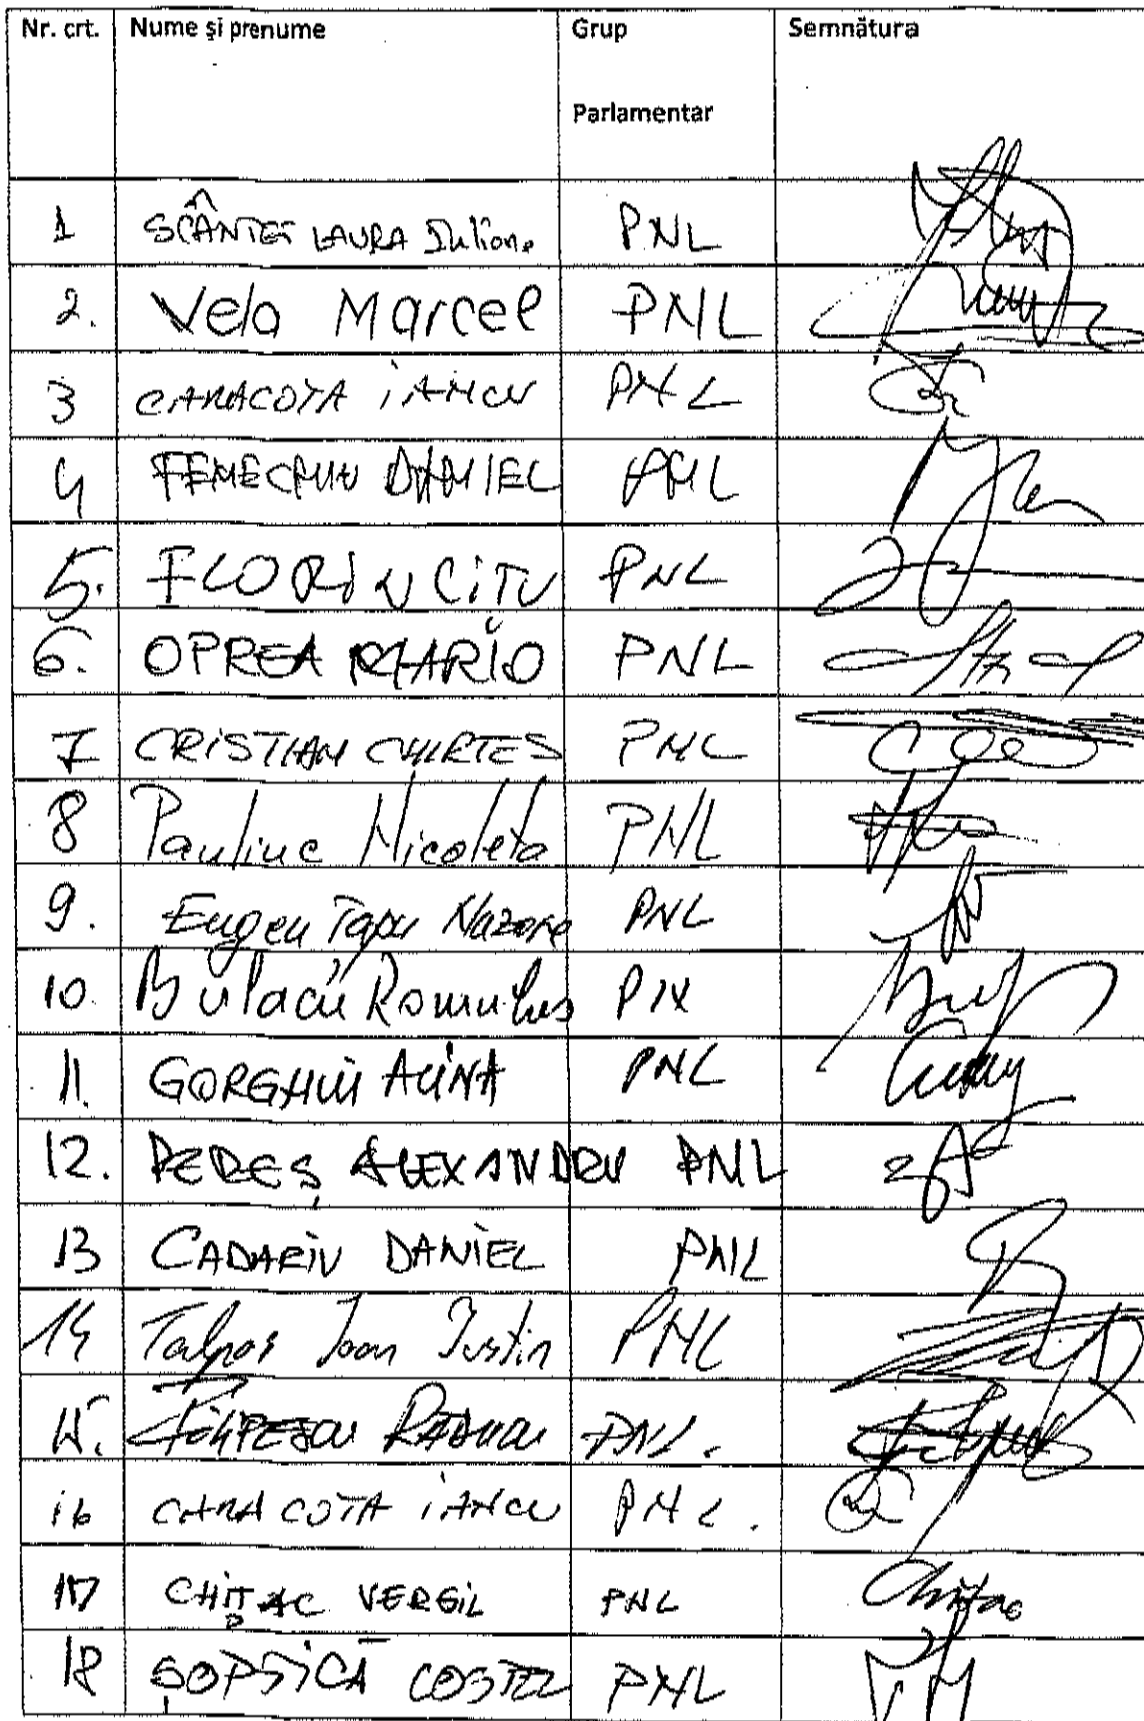 Nr. crt. Nume și prenume Grup Parlamentar Semnătura
1 SCÂNTEI LAURA Iuliana PNL
2. Vela Marcel PNL
3 CARACOTA IANCU PNL
4 FENECHIU DANIEL PNL
5. FLORIN CITU PNL
6. OPREA MARIO PNL
7 CRISTIAN CHIRTES PNL
8 Pauliuc Nicoleta PNL
9. Eugen Tapu Nazare PNL
10. Bulacu Romulus PNL
11. GORGHIU ALINA PNL
12. PEREȘ ALEXANDRU PNL
13 CADARIU DANIEL PNL
14 Talpoș Ioan Iustin PNL
15. FILIPESCU RĂDUCU PNL.
16 CARACOTA IANCU PNL.
17 CHIȚAC VERGIL PNL Chițac
18 ȘOPTICĂ COSTEL PNL